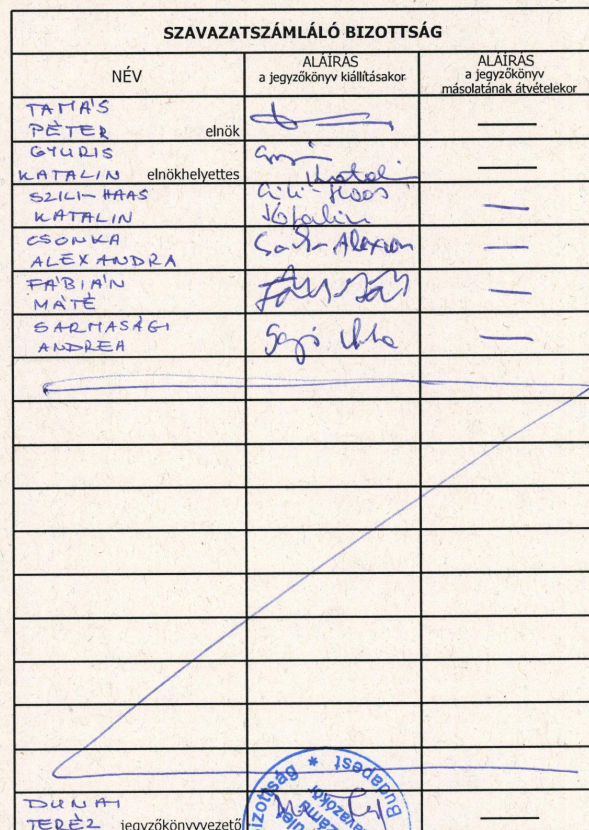 SZAVAZATSZÁMLÁLÓ BIZOTTSÁG
NÉV
ALÁÍRÁS
a jegyzőkönyv kiállításakor
ALÁÍRÁS
a jegyzőkönyv
másolatának átvételekor
TAMÁS
PÉTER elnök
GYURIS
KATALIN elnökhelyettes
Katalin
SZILI-HAAS
KATALIN
Szili-Haas
Katalin
CSONKA
ALEXANDRA
FÁBIÁN
MÁTÉ
SARMASÁGI
ANDREA
DUNAI
TERÉZ jegyzőkönyvvezető
* Budapest